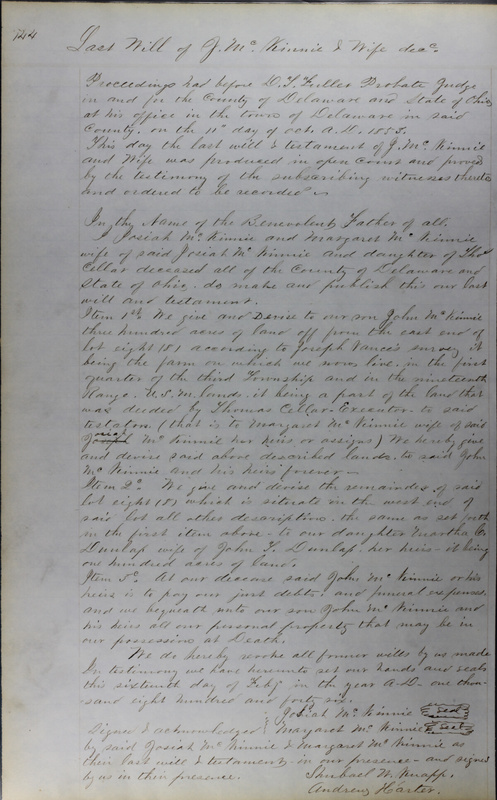 144
Last Will of J. Mc Kinnie & Wife decd.
Proceedings had before D. T. Fuller Probate Judge
in and for the County of Delaware and State of Ohio
at his office in the town of Delaware in said
County. on the 11th day of Oct. A.D. 1853.
This day the last will & testament of J. Mc Kinnie
and Wife was produced in open Court and proved
by the testimony of the subscribing witnesses thereto
and ordered to be recorded
In the Name of the Benevolent Father of all.
I Josiah Mc Kinnie and Margaret Mc Kinnie
wife of said Josiah Mc Kinnie and daughter of Thos
Cellar deceased all of the County of Delaware and
State of Ohio, do make and publish this our last
will and testament.
Item 1st We give and Devise to our son John Mc Kinnie
three hundred acres of land off from the east end of
lot eight (8) according to Joseph Vance's survey it
being the farm on which we now live, in the first
quarter of the third Township and in the nineteenth
Range. U.S.M. lands. it being a part of the land that
was deeded by Thomas Cellar Executor to said
testators (that is to Margaret Mc Kinnie wife of said
Josiah Mc Kinnie her heirs or assigns) We hereby give
and devise said above described lands to said John
Mc Kinnie and his heirs forever —
Item 2d. We give and devise the remainder of said
lot eight (8) which is situate on the west end of
said lot all other description the same as set forth
in the first item above - to our daughter Martha C.
Dunlap wife of John F. Dunlap. her heirs - it being
one hundred acres of land.
Item 3d. At our decease said John Mc Kinnie or his
heirs is to pay our just debts and funeral expenses.
and we bequeath unto our son John Mc Kinnie and
his heirs all our personal property that may be in
our possession at Death.
We do hereby revoke all former wills by us made
In testimony we have hereunto set our hands and seals
this sixteenth day of Feby in the year A.D. one thou-
sand eight hundred and forty six.
Josiah Mc Kinnie seal
Signed & acknowledged Margaret Mc Kinnie seal
by said Josiah Mc Kinnie & Margaret Mc Kinnie as
their last will & testament in our presence - and signed
by us in their presence. Shubael W. Knapp.
Andrew Harter.